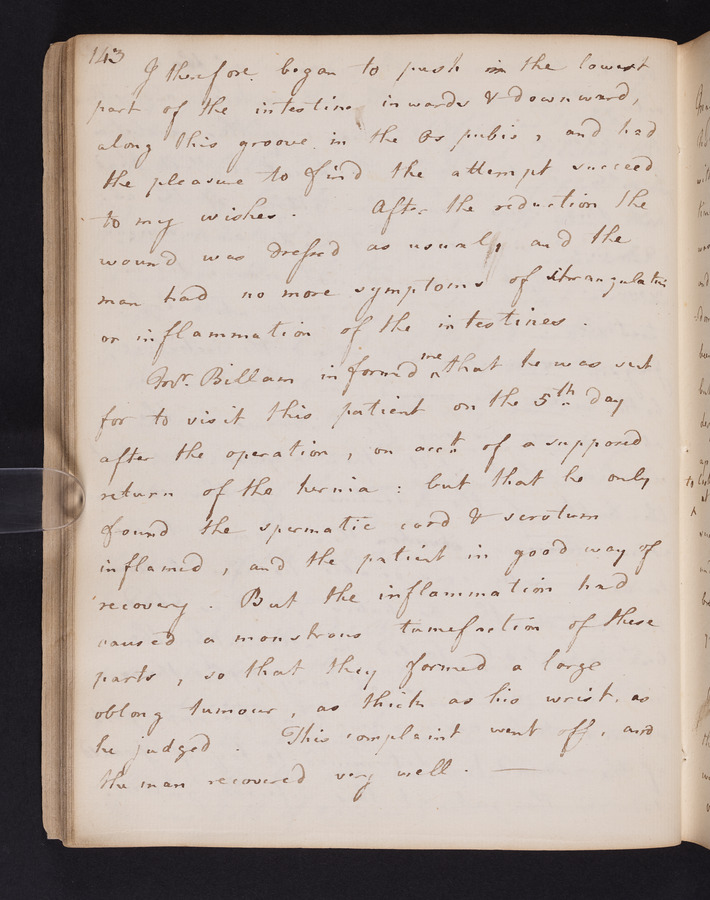 143
I therefore began to push in the lowest
part of the intestine inwards & downward,
along this groove in the Os pubis, and had
the pleasure to find the attempt succeed
to my wishes. After the reduction the
wound was dressed as usual, and the
man had no more symptoms of strangulation
or inflammation of the intestines.
Mr. Billam informed me that he was sent
for to visit this patient on the 5th day
after the operation, on acct. of a supposed
return of the hernia: but that he only
found the spermatic cord & scrotum
inflamed, and the patient in good way of
recovery. But the inflammation had
caused a monstrous tumefaction of these
parts, so that they formed a large
oblong tumour, as thick as his wrist, as
he judged. This complaint went off, and
the man recovered very well. —